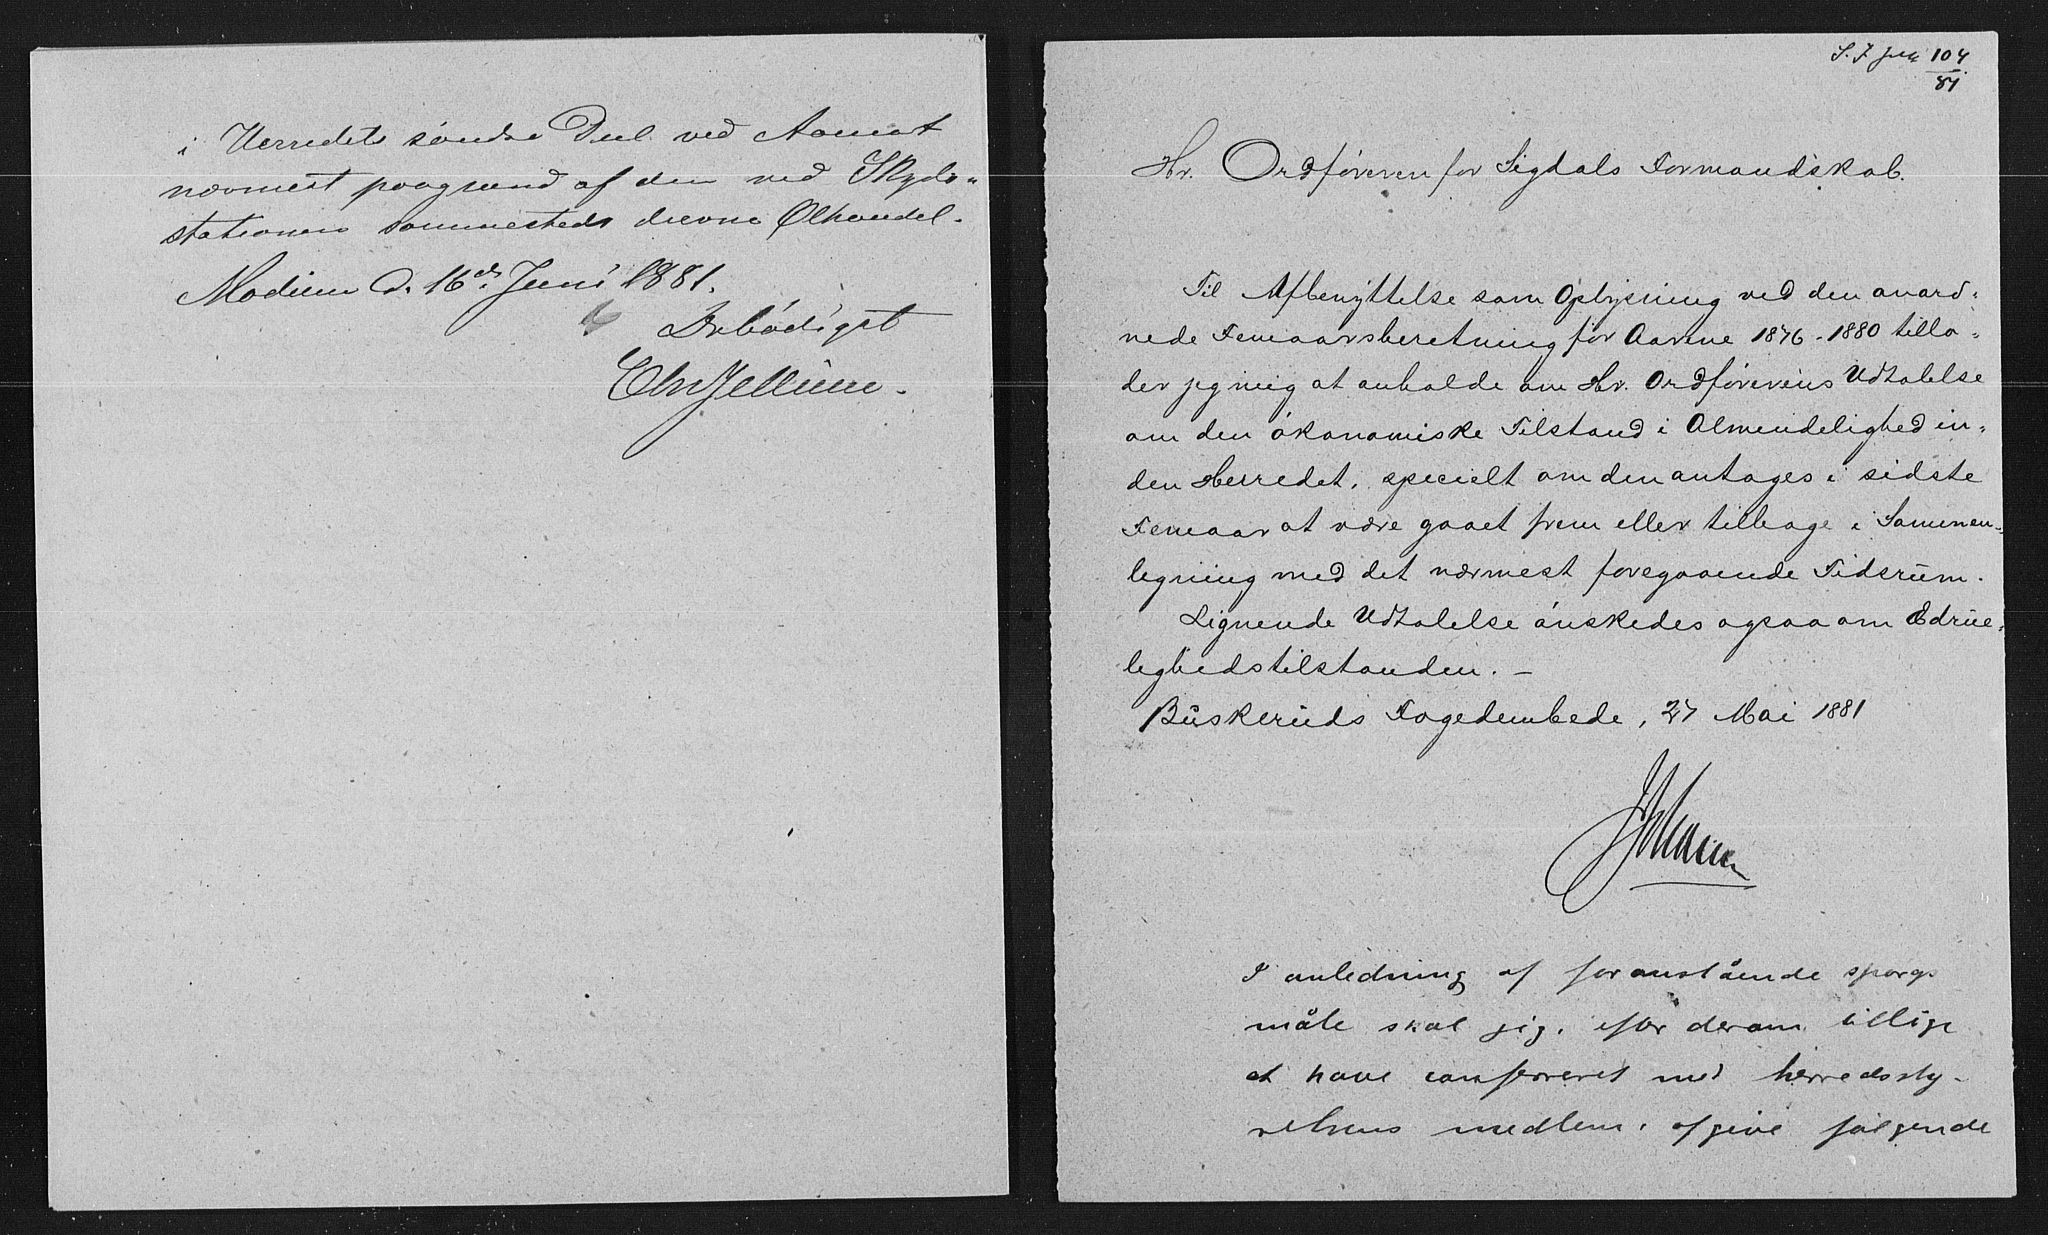 i Herredets søndre Deel ved Aamot
nærmest paagrund af den ved Skyds-
stationen sammesteds drevne Ølhandel.
Modum d. 16de Juni 1881.
Ærbödigst
Chr Jellum.
104
81.
Hr. Ordföreren for Sigdals Formandskab.
Til Afbenyttelse som Oplysning ved den anord-
nede Femaarsberetning for Aarene 1876-1880 tilla-
der jeg mig at anholde om Hr. Ordförerens Udtalelse
om den ökonomiske Tilstand i Almendelighed in-
den Herredet, specielt om den antages i sidste
Femaar at være gaaet frem eller tilbage i Sammen-
ligning med det nærmest foregaaende Tidsrum.
Lignende Udtalelse önskedes ogsaa om Ædrue-
lighedstilstanden. -
Buskeruds Fogedembede, 27 Mai 1881
I anledning af foranstående spørgs
måle skal jeg, efter derom tillige
at have confereret med herredssty-
relsens medlem. afgive følgende